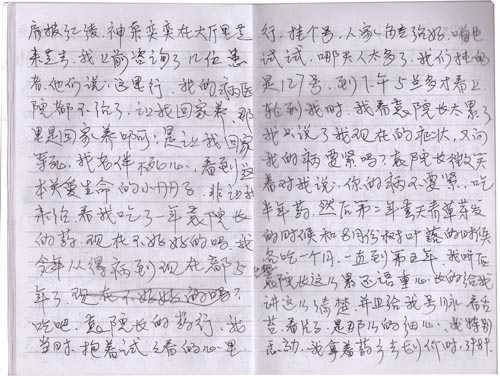 走去，我上前咨询了几位患
者，他们说：这里行，我的病医
院都不给了，让我回家养，那
里是回家养啊，是让我回家
等死，我老伴不死心，看到这
本关爱生命的小册子，非让我
来信看我吃了一年袁院长
的药，现在不好好的吗，我
今年从得病到现在都5
年了，现在不好好的吗？
吃吧，袁院长的药行，我
当时，抱着试之看的心里
行，挂个号，人家一百去给好，咱也
试试，哪天人太多了，我们挂的
是127号，到下午5点多才看上
轮到我时，我看袁院长太累了
我只说了我现在的症状，又问
我的病要紧吗？袁院长微笑
着对我说：你的病不要紧，吃
半年药，然后第二年春天春草芽发
的时候和8月份树叶落的时候
各吃一个月，一直到第五年，我听
袁院长这么累还语重心长的给我
讲这么清楚，并且给我号脉，看舌
苔，看片子，是那么的细心，我特别
感动，我拿着药方去划价时，398